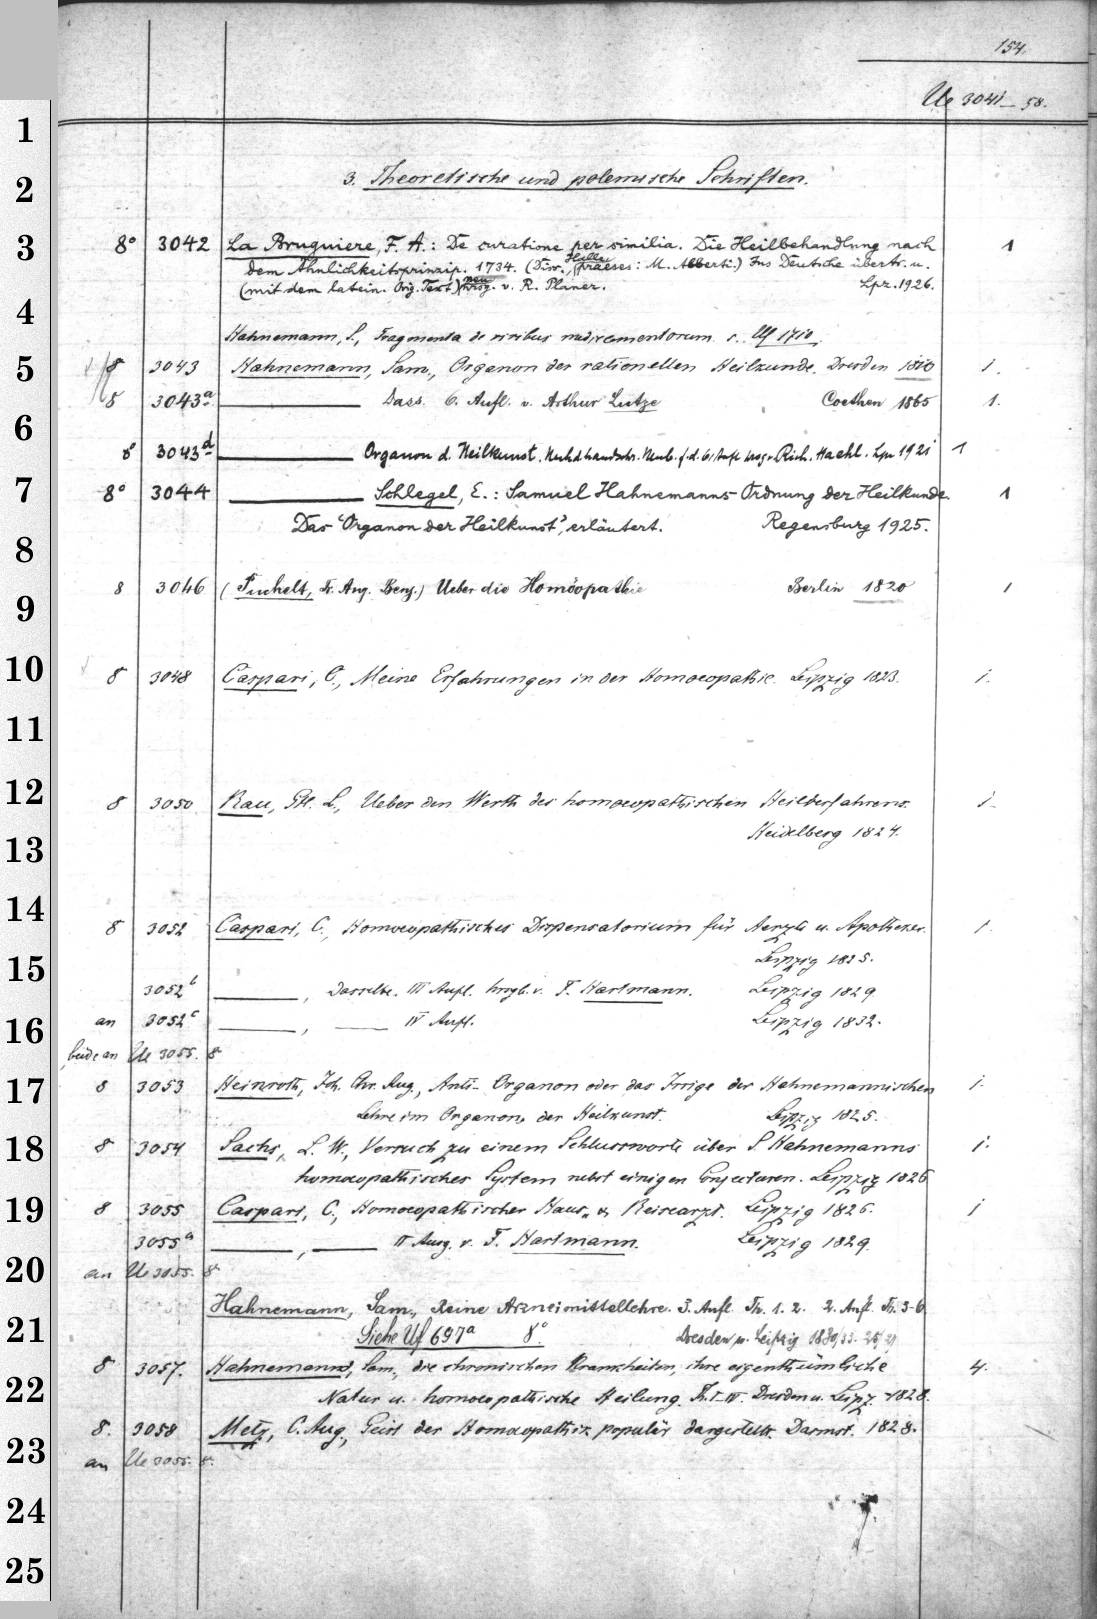 154.
Ue 3041-58.
1
2
3. Theoretische und polemische Schriften.
3
8° 3042 La Bruguiere, F. A.: De curatione per similia. Die Heilbehandlung nach 1
dem Ähnlichkeitsprinzip. 1734. (Diss., Halle, Praeses: M. Alberti.) Ins Deutsche übertr. u.
(mit dem latein. Orig. Text) neu hrsg. v. R. Planer. Lpz. 1926.
4
Hahnemann, S., Fragmenta de viribus medicamentorum s. Uf 1710.
5
8 3043 Hahnemann, Sam., Organon der rationellen Heilkunde. Dresden 1810 1.
8 3043a ——— Dass. 6. Aufl. v. Arthur Lutze Coethen 1865 1.
6
8° 3043d ——— Organon d. Heilkunst. Nach d. handschr. Neub. f. d. 6. Aufl. hrsg. v. Rich. Haehl. Lpz 1921 1
7
8° 3044 ——— Schlegel, E.: Samuel Hahnemanns Ordnung der Heilkunde. 1
Das "Organon der Heilkunst", erläutert. Regensburg 1925.
8
8 3046 (Puchelt, Fr. Aug. Benj.) Ueber die Homöopathie Berlin 1820 1
9
10
8 3048 Caspari, C., Meine Erfahrungen in der Homoeopathie. Leipzig 1823. 1.
11
12
8 3050 Rau, Gtl. L., Ueber den Werth des homoeopathischen Heilverfahrens. 1.
Heidelberg 1824.
13
14
8 3052 Caspari, C., Homoeopathisches Dispensatorium für Aerzte u. Apotheker. 1.
Leipzig 1825.
15
3052b ———, Dasselbe. III Aufl. hrsgb. v. F. Hartmann. Leipzig 1829
16
an 3052c ———, —— IV Aufl. Leipzig 1832.
beide an Ue 3055. 8
17
8 3053 Heinroth, Joh. Chr. Aug., Anti-Organon oder das Irrige der Hahnemannischen 1.
Lehre im Organon der Heilkunst. Leipzig 1825.
18
8 3054 Sachs, L. W., Versuch zu einem Schlussworte über S. Hahnemanns 1.
homoeopathisches System nebst einigen Conjecturen. Leipzig 1826
19
8 3055 Caspari, C., Homoeopathischer Haus- u. Reisearzt. Leipzig 1826. 1
3055a ———, ——— II Ausg. v. F. Hartmann. Leipzig 1829.
20
an Ue 3055. 8
Hahnemann, Sam., Reine Arzneimittellehre. 3. Aufl. Th. 1. 2. 2. Aufl. Th. 3-6
21
Siehe Uf 697a 8°. Dresden u. Leipzig 1830/33. 25/27
8 3057. Hahnemann, Sam., die chronischen Krankheiten, ihre eigenthümliche 4.
22
Natur u. homoeopathische Heilung. Th. I-IV. Dresden u. Leipz. 1828.
8. 3058 Metz, C. Aug., Geist der Homoeopathie populär dargestellt. Darmst. 1828.
23
an Ue 3055. 8.
24
25